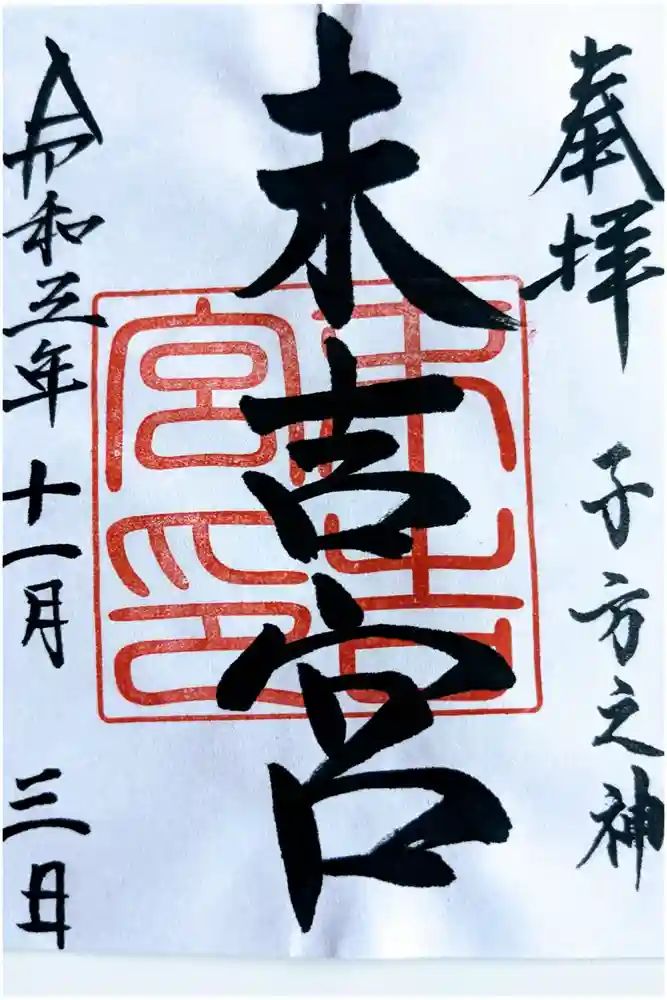 奉拝　子方之神
末吉宮
令和五年十一月三日
末吉
宮印